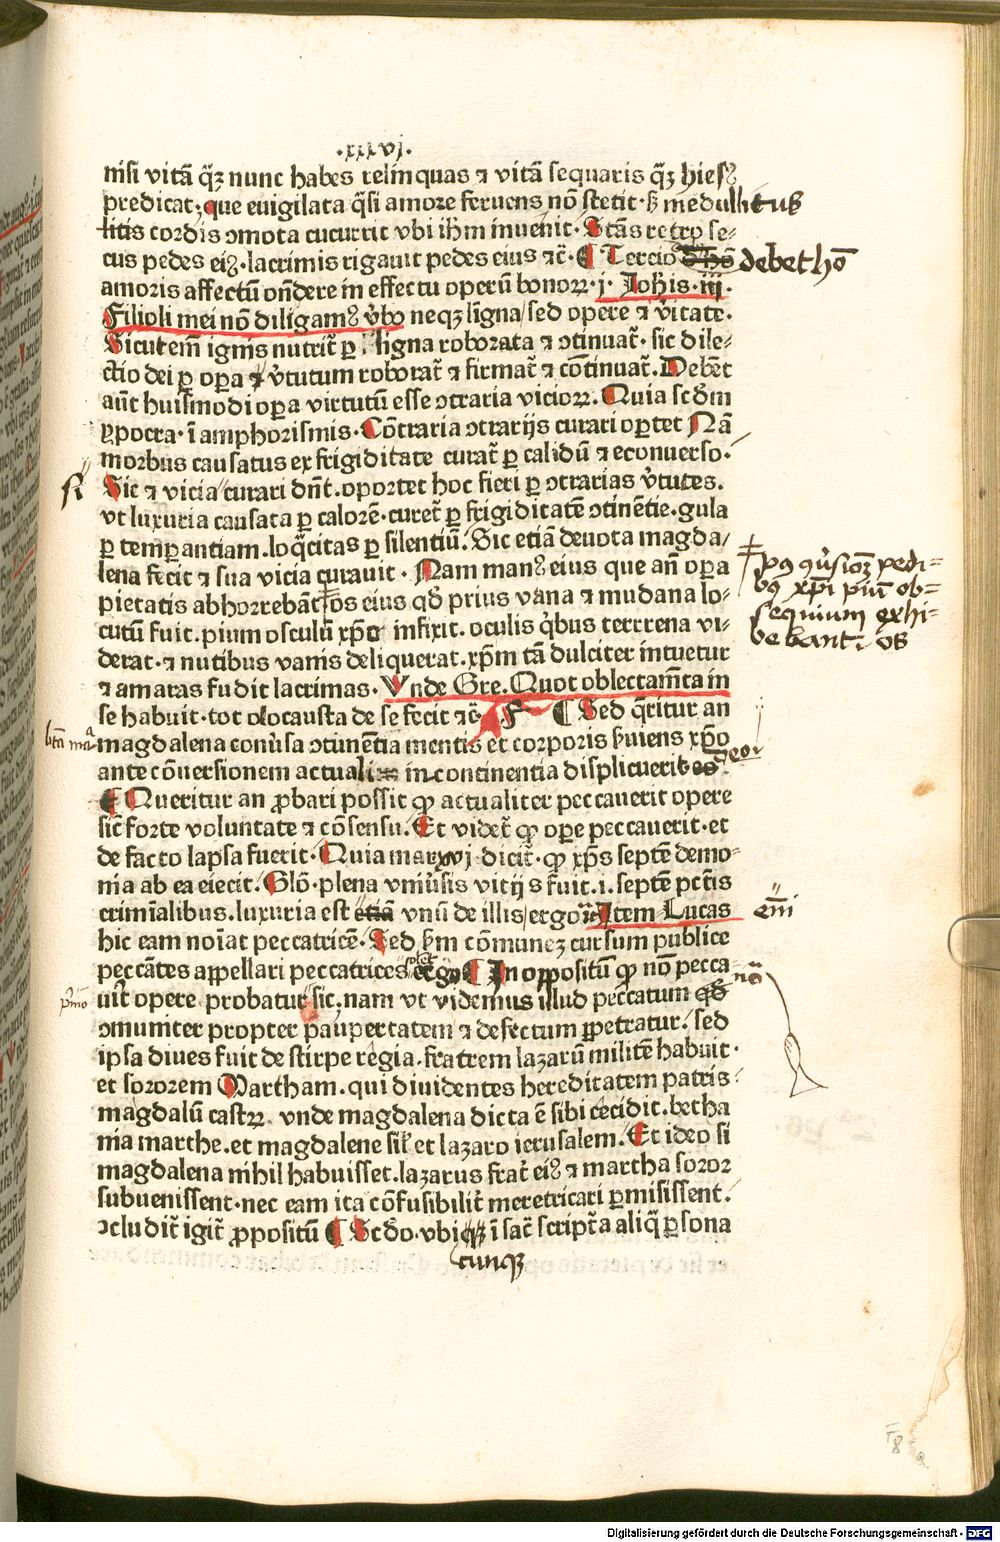 .xxxvj.
nisi vitā q̄ꝫ nunc habes relinquas ⁊ vitā sequaris q̄ꝫ hiesꝰ
predicat; que euigilata q̄si amore feruens nō stetit. sꝫ medullitus
litis cordis ↄmota cucurrit vbi ih̄m inuenit. Stās retro se-
cus pedes eiꝰ. lacrimis rigauit pedes eius ⁊c̄. ¶ Tercio debet hō
amoris affectū on̄dere in effectu operū bonoꝝ. j. Ioh̄is. iij.
Filioli mei nō diligamꝰ v̄bo neqꝫ ligna/sed opere ⁊ v̄itate.
Sicut em̄ ignis nutrit̄ ꝑ ligna roborata ⁊ ↄtinuat̄. sic dile-
ctio dei ꝑ oꝑa ⁊ v̄tutum roborat̄ ⁊ firmat̄ ⁊ cōtinuat̄. Debēt
aūt huismodi oꝑa virtutū esse ↄtraria vicioꝝ. Quia scd̄m
ypocra. ī amphorismis. Cōtraria ↄtrarijs curari oꝑtet Nā
morbus causatus ex frigiditate curat̄ ꝑ calidū ⁊ econuerso.
si
Sic ⁊ vicia/curari dn̄t. oportet hoc fieri ꝑ ↄtrarias v̄tutes.
vt luxuria causata ꝑ calorē. curet̄ ꝑ frigiditatē ↄtinētie. gula
ꝑ temꝑantiam. loq̄citas ꝑ silentiū. Sic etiā deuota magda/
lena fecit ⁊ sua vicia curauit. Nam manꝰ eius que an̄ oꝑa
pietatis abhorrebāt os eius qd̄ prius vana ⁊ mūdana lo-
pꝰ ꝯuīsioꝫ pedi-
bꝰ xp̄i piū ob-
sequium exhi-
bebant. os
cutū fuit. pium osculū xp̄o infixit. oculis q̇bus terrena vi-
derat. ⁊ nutibus vanis deliquerat. xp̄m tā dulciter intuetur
⁊ amaras fudit lacrimas. Vnde Gre. Quot oblectam̄ta in
se habuit. tot olocausta de se fecit ⁊c̄. ¶ Sed q̄ritur an
btā maᵃ
magdalena conūsa ↄtinētia mentis et corporis s̄uiens xp̄o
ante cōuersionem actuali incontinentia displicuerit deo
¶ Queritur an ꝓbari possit ꝙ actualiter peccauerit opere
sic̄ forte voluntate ⁊ cōsensu. Et videt̄ ꝙ oꝑe peccauerit. et
de facto lapsa fuerit. Quia mar xvj dicit̄. ꝙ xp̄s septē demo-
nia ab ea eiecit. Glō. plena vniūsis vitijs fuit. i. septē pctīs
criminalibus. luxuria est etiā vnū de illis/ergo ⁊c̄. Item Lucas
em̄i
hic eam noīat peccatricē. Sed s̄m cōmunez cursum publice
peccātes appellari peccatrices solet ergo ¶ In oppositū ꝙ nō pecca-
pīmo
uit̄ opere probatur sic. nam vt videmus illud peccatum qd̄
ↄmuniter propter paupertatem ⁊ defectum ꝑpetratur. sed
ipsa diues fuit de stirpe regia. fratrem lazarū militē habuit.
et sororem Martham. qui diuidentes hereditatem patris.
magdalū castꝝ. vnde magdalena dicta ē sibi cecidit. betha
nia marthe. et magdalene sil̄ et lazaro ierusalem. Et ideo si
magdalena nihil habuisset. lazarus frat̄ eiꝰ ⁊ martha soror
subuenissent. nec eam ita cōfusibilit̄ meretricari ꝑmisissent.
ↄcludit̄ igit̄ ꝓpositū ¶ Scd̄o. vbiqꝫ ī sac̄ script̄a aliq̄ ꝑsona
cunqꝫ
Digitalisierung gefördert durch die Deutsche Forschungsgemeinschaft - DFG